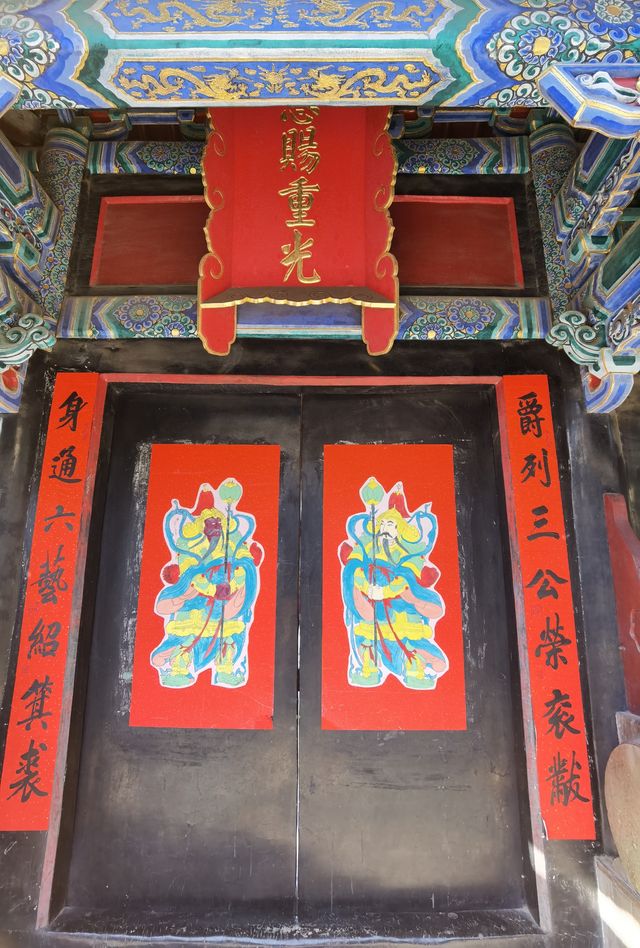 恩賜重光
爵列三公榮衮黻
身通六藝紹箕裘